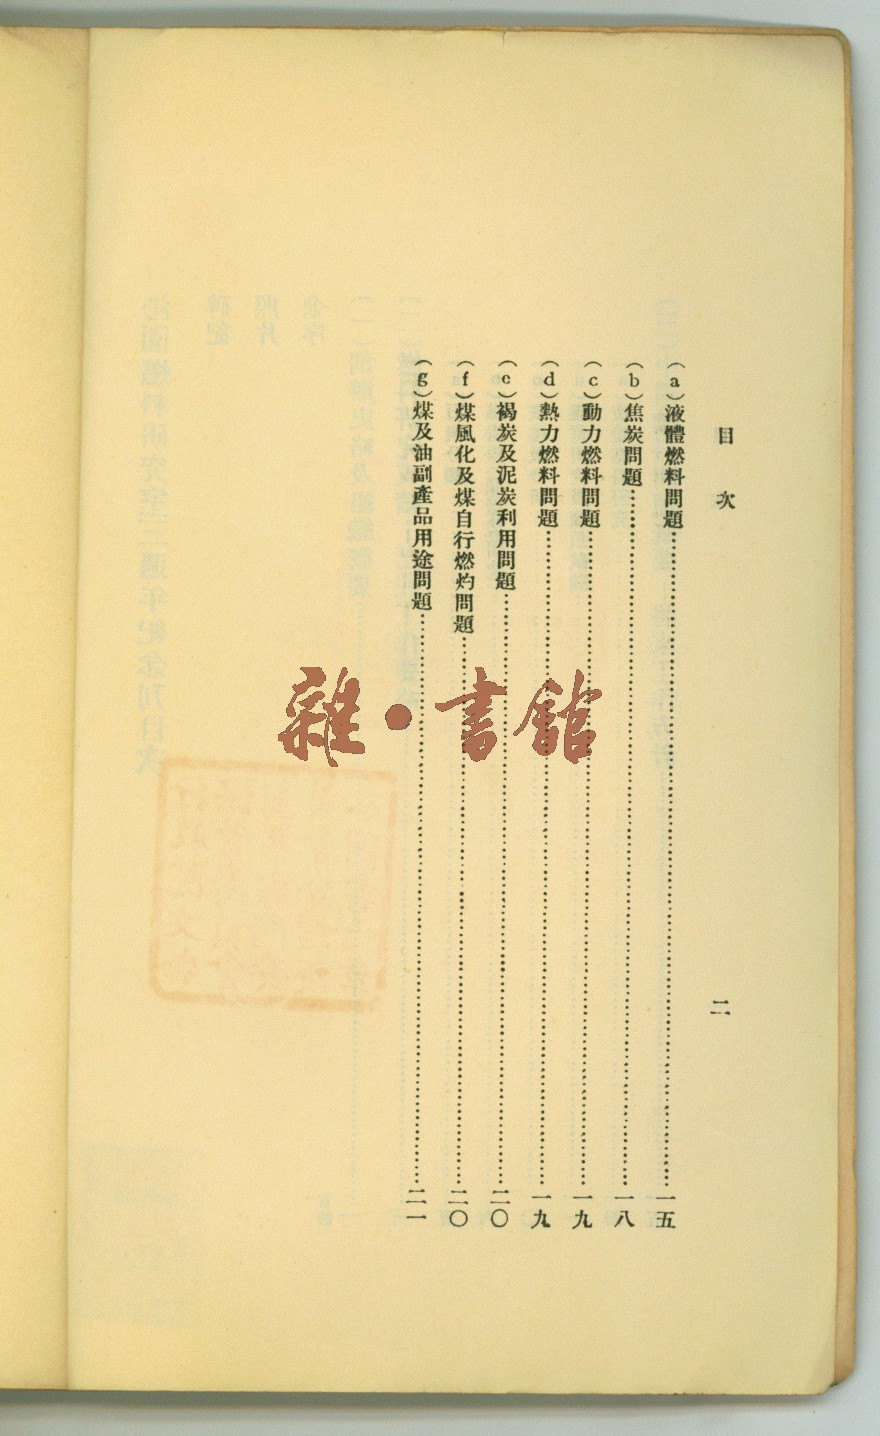 目次
二
(a)液體燃料問題……一五
(b)焦炭問題……一八
(c)動力燃料問題……一九
(d)熱力燃料問題……一九
(e)褐炭及泥炭利用問題……二〇
(f)煤風化及煤自行燃灼問題……二〇
(g)煤及油副產品用途問題……二一
雜·書館